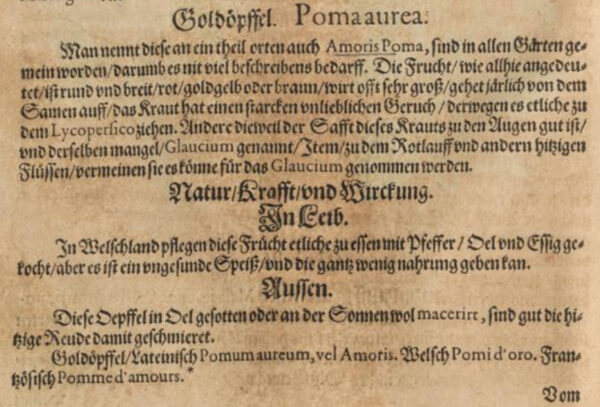 Goldöpffel. Poma aurea.
Man nennt diese an ein theil orten auch Amoris Poma, sind in allen Gärten ge-
mein worden/ darumb es nit viel beschreibens bedarff. Die Frucht/ wie allhie angedeu-
tet/ ist rund vnd breit/ rot/ goldgelb oder braun/ wirt offt sehr groß/ gehet järlich von dem
Samen auff/ das Kraut hat einen starcken vnlieblichen Geruch/ derwegen es etliche zu
dem Lycopersico ziehen. Andere dieweil der Safft dieses Krauts zu den Augen gut ist/
vnd derselben mangel/ Glaucium genannt/ Item/ zu dem Rotlauff vnd andern hitzigen
Flüssen/ vermeinen sie es könne für das Glaucium genommen werden.
Natur/ Krafft/ vnd Wirckung.
In Leib.
In Welschland pflegen diese Frücht etliche zu essen mit Pfeffer/ Oel vnd Essig ge-
kocht/ aber es ist ein vngesunde Speiß/ vnd die gantz wenig nahrung geben kan.
Aussen.
Diese Oepffel in Oel gesotten oder an der Sonnen wol macerirt, sind gut die hi-
tzige Reude damit geschmieret.
Goldöpffel/ Lateinisch Pomum aureum, vel Amoris. Welsch Pomi d'oro. Fran-
tzösisch Pomme d'amours.*
Vom